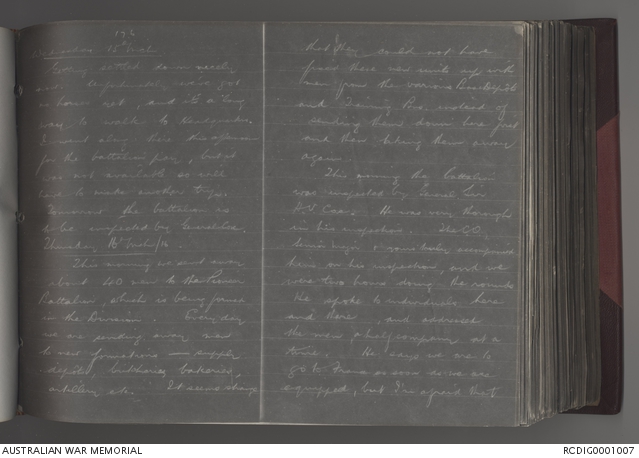 196
Wednesday 15th March.
Going settled down nicely
and unfortunately we've got
no horses yet, and it's a long
way to walk to Headquarters.
I went along here this afternoon
for the battalion pay, but it
was not available so will
have to make another trip.
Tomorrow the battalion is
to be inspected by General Cox.
Thursday 16th March/16.
This morning we sent away
about 40 men to the Pioneer
Battalion, which is being formed
in the Division. Every day
we are sending away men
to new formations — supply
depots, butcheries, bakeries,
artillery etc. It seems strange
that they could not have
formed these new units up with
men from the various
and Training Bns. instead of
sending them down here first
and then taking them away
again.
This morning the battalion
was inspected by General Sir
H.V. Cox. He was very thorough
in his inspection. The CO,
him on his inspection, and we
were two hours doing the rounds
He spoke to individuals here
and there, and addressed
the men a half company at a
time. He says we are to
go to France as soon as we are
equipped, but I'm afraid that
AUSTRALIAN WAR MEMORIAL
RCDIG0001007